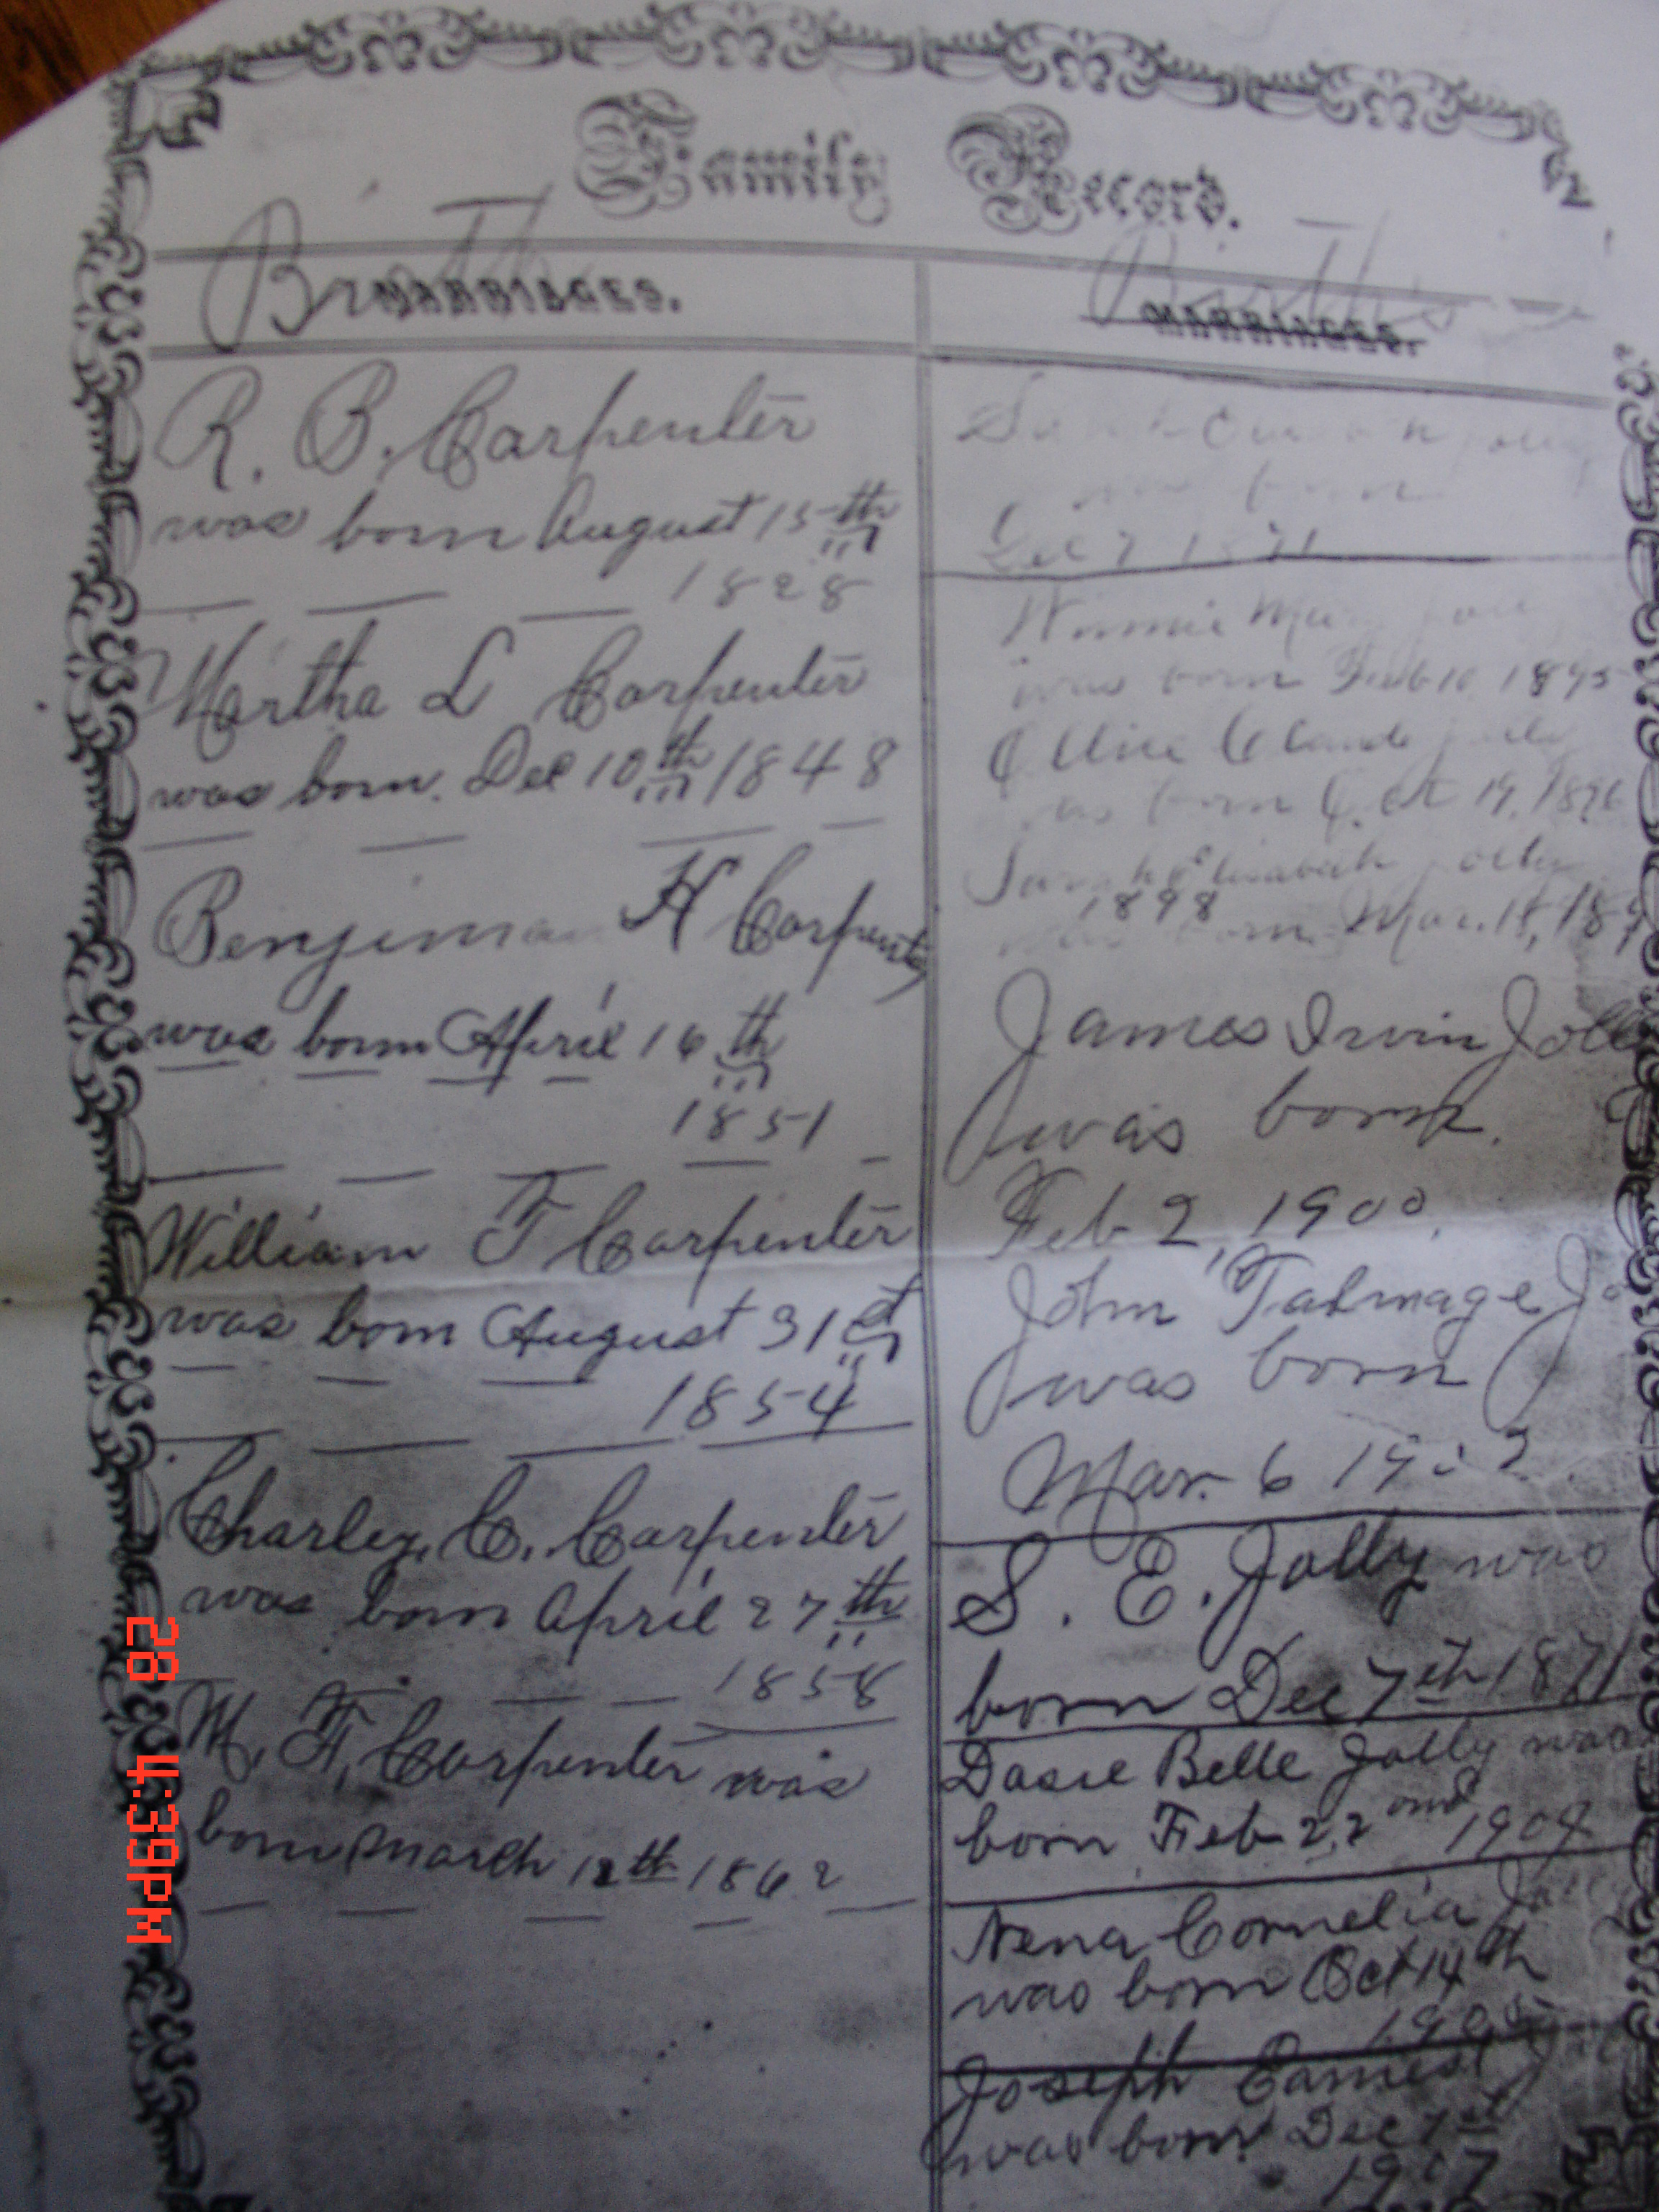 Family Record.
Births
MARRIAGES.
R. B. Carpenter
was born August 15th
1828
Martha L Carpenter
was born. Dec 10th 1848
Benjiman H Carpenter
was born April 16th
1851
William F Carpenter
was born August 31st
1854
Charley. C. Carpenter
was born April 27th
1858
M. F. Carpenter was
born March 12th 1862
Births
MARRIAGES.
was born
Dec 7 1871
was born Feb 10, 1895
Ollie Claude Jolly
was born Oct 19, 1896
Sarah Elizabeth Jolly
1898
was born Mar. 18, 18
James Irvin Jolly
was born.
Feb 2, 1900.
John Talmage Jo
was born
Mar. 6
S. E. Jolly was
born Dec 7th 1871
Dasie Belle Jolly was
born Feb 22ond 1904
Nena Cornelia Jolly
was born Oct 14th
Joseph Earnest
was born Dec 1st
1907
28 4:39PM